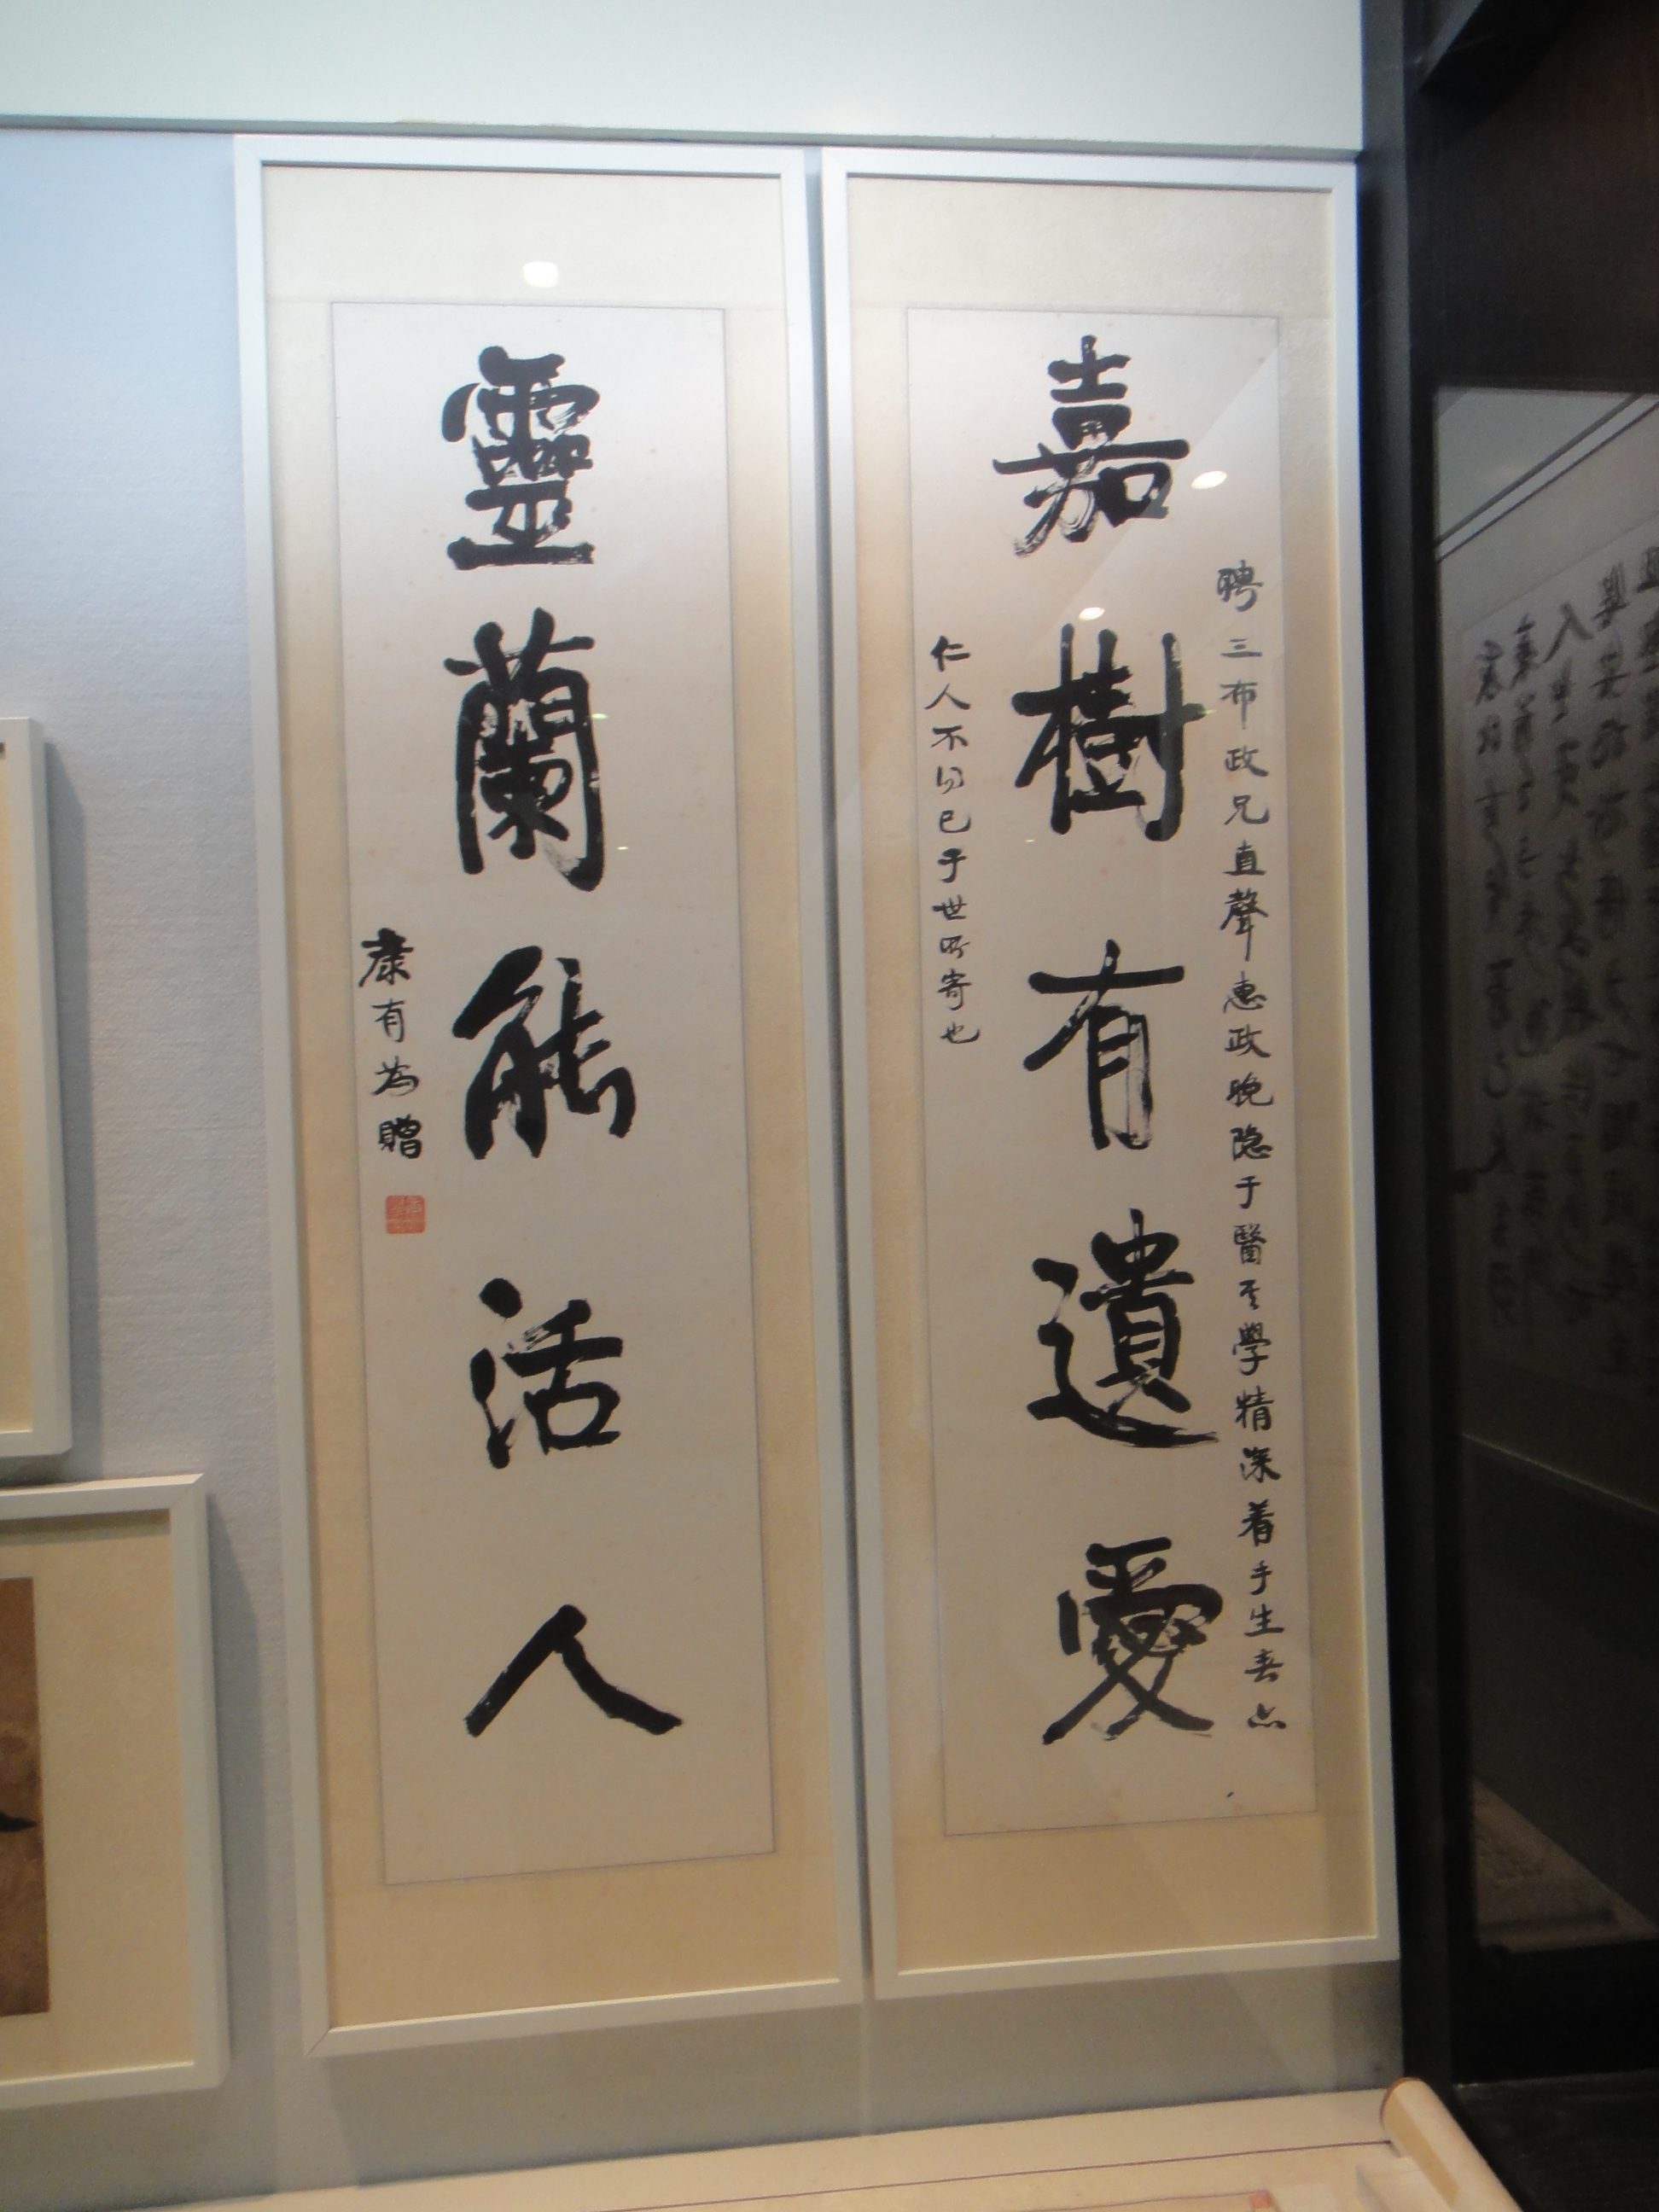 嘉樹有遺愛
聘三布政兄直聲惠政晚隐于醫其學精深着手生春亦
仁人不得已于世所寄也
靈蘭能活人
康有為贈